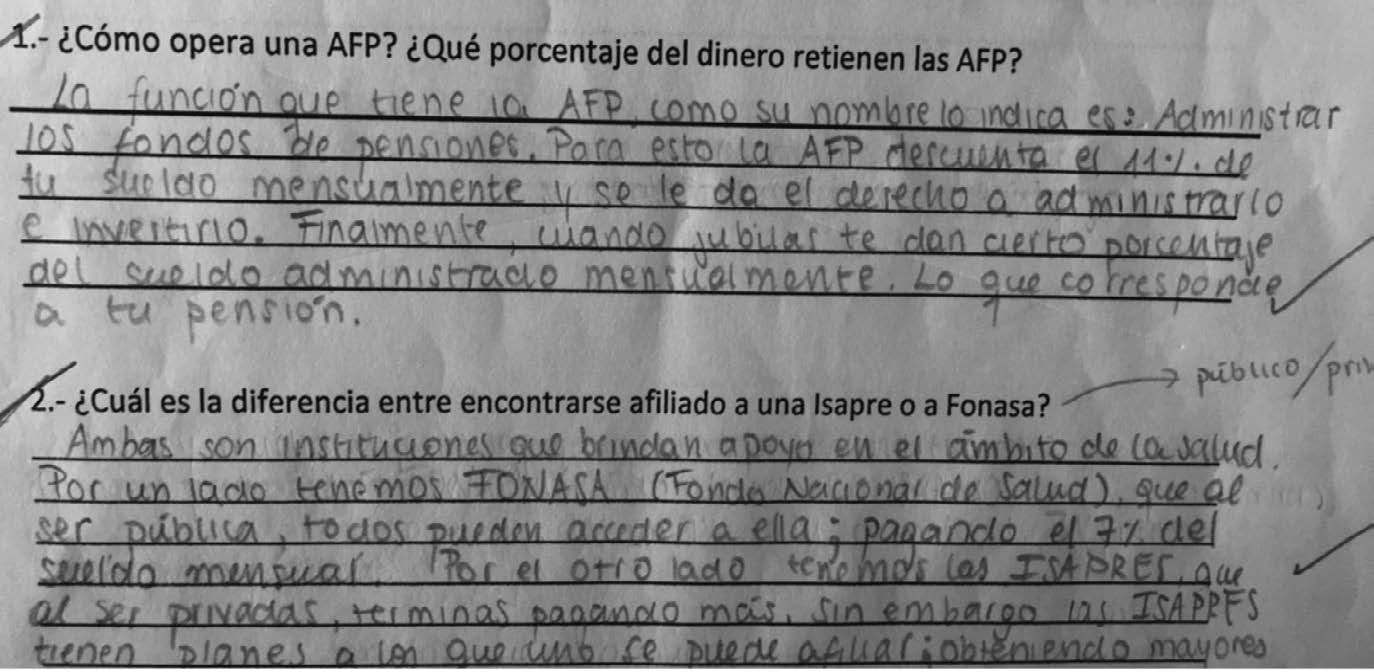 1.- ¿Cómo opera una AFP? ¿Qué porcentaje del dinero retienen las AFP?
La función que tiene la AFP, como su nombre lo indica es: Administrar
los fondos de pensiones. Para esto la AFP descuenta el 11%. de
tu sueldo mensualmente y se le da el derecho a administrarlo
e invertirlo. Finalmente, cuando jubilas te dan cierto porcentaje
del sueldo administrado mensualmente. Lo que corresponde
a tu pensión.
público/priv
2.- ¿Cuál es la diferencia entre encontrarse afiliado a una Isapre o a Fonasa?
Ambas son instituciones que brindan apoyo en el ámbito de la salud.
Por un lado tenemos FONASA (Fondo Nacional de Salud), que al
ser pública, todos pueden acceder a ella; pagando el 7% del
sueldo mensual. Por el otro lado tenemos las ISAPRES, que
al ser privadas, terminas pagando más, sin embargo las ISAPRES
tienen planes a los que uno se puede afiliar; obteniendo mayores